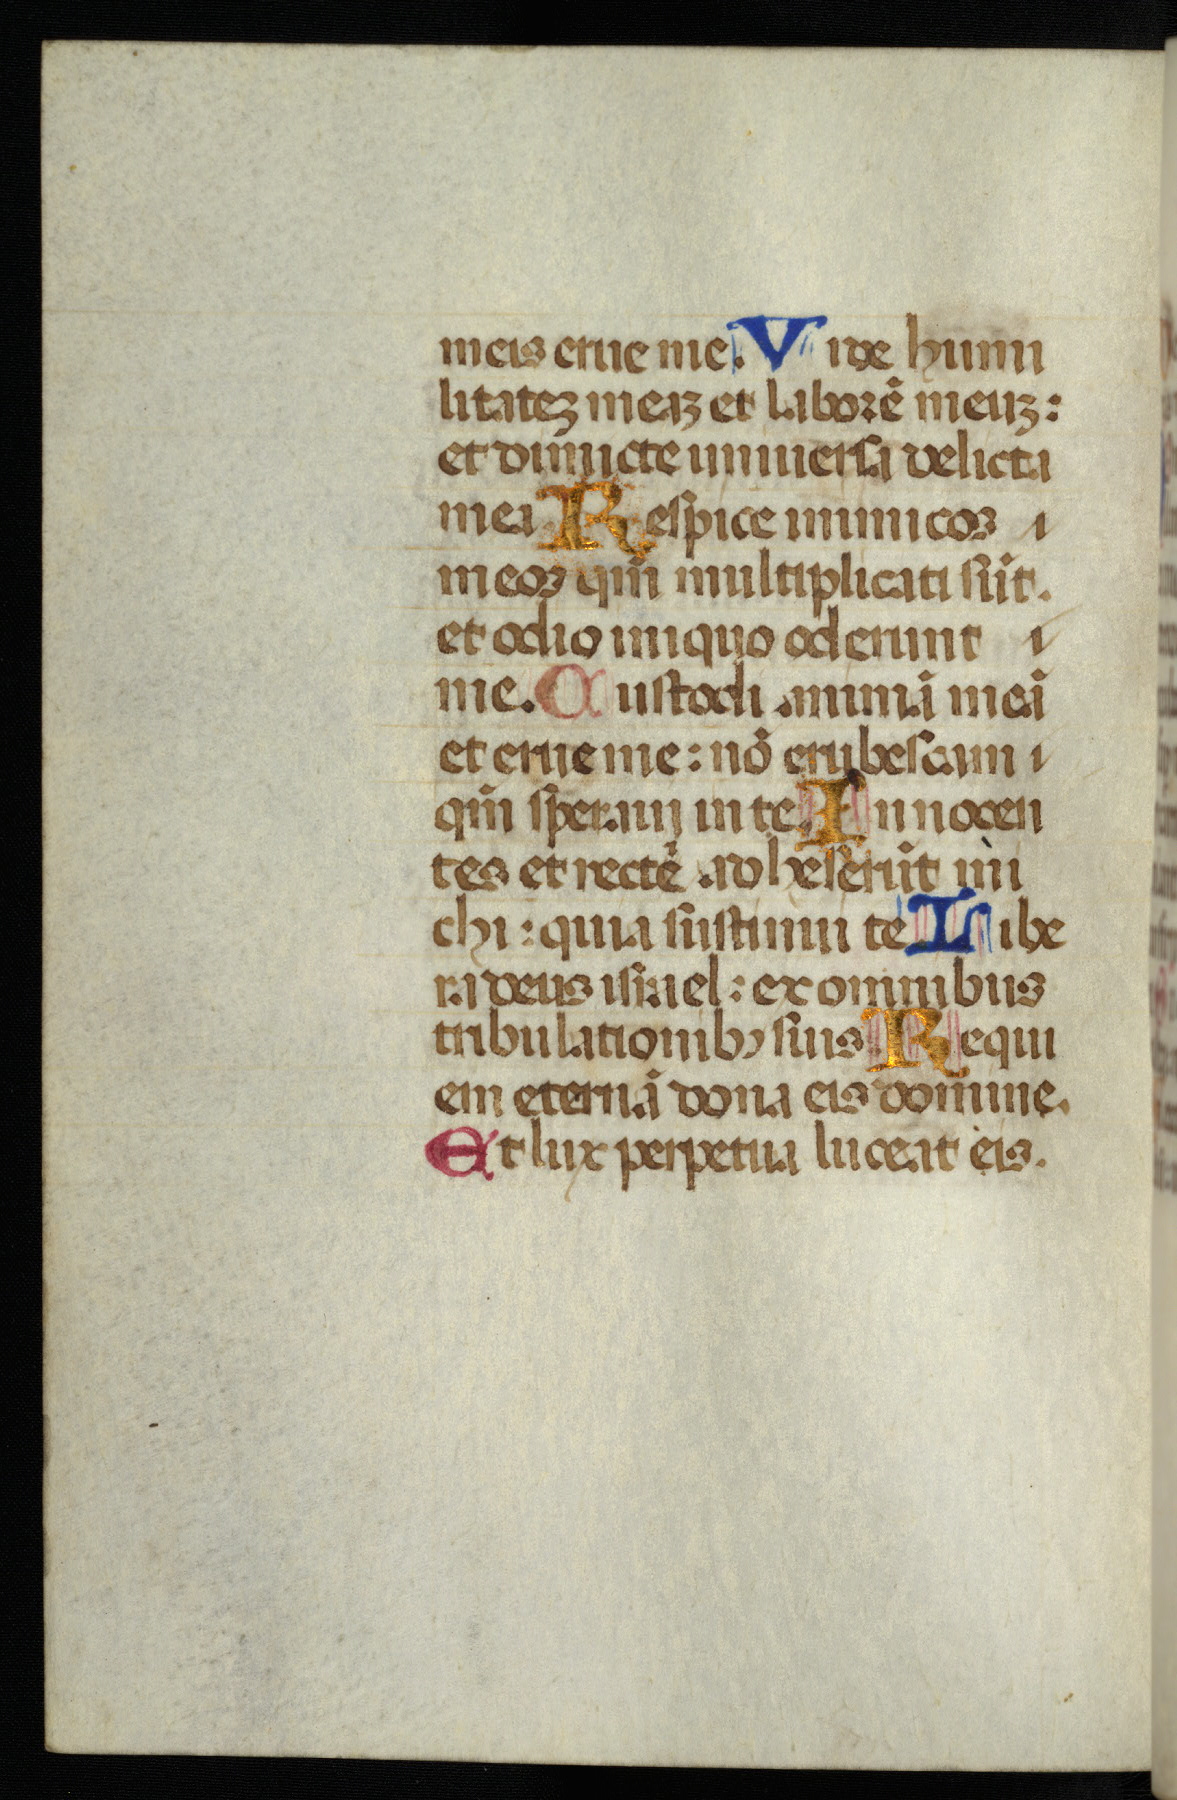 meis erue me. Vide humi
litateȝ meaȝ et laborē meuȝ:
et dimicte uniuersa delicta
mea Respice inimicos ı
meos qm̄ multiplicati sūt.
et odio iniquo oderunt ı
me. Custodi animā meā
et erue me: nō erubescam ı
qm̄ speraui in te. Innocen
tes et rectē adheserūt mi
chi: quia sustinui te Libe
ra deus israel: ex omnibus
tribulationibꝫ suis Requi
em eternā dona eis domine.
Et lux perpetua luceat eis.